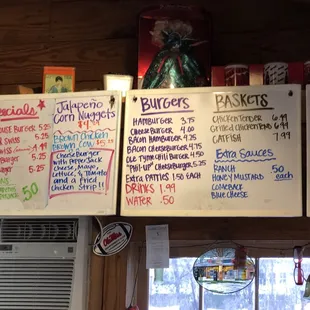 Specials
House Burger 5.25
5.25
5.25
5.25
Burger 5.25
.50
Jalapeño
Corn Nuggets
$4.99
Brown Chicken
Brown Cow $5.75
Cheeseburger
with Pepperjack
Cheese, Mayo,
Lettuce, & Tomato
and a Fried
Chicken Strip!!
Burgers
Hamburger 3.75
Cheeseburger 4.00
Bacon Hamburger 4.75
Bacon Cheeseburger 5.00
"Phil" up Cheeseburger 5.25
Extra Patties 1.50 each
Drinks 1.99
Water .50
Baskets
Chicken Tender 6.99
Grilled Chicken Tender 6.99
Catfish 7.99
Extra Sauces
Ranch .50
Honey Mustard each
Comeback
Blue Cheese